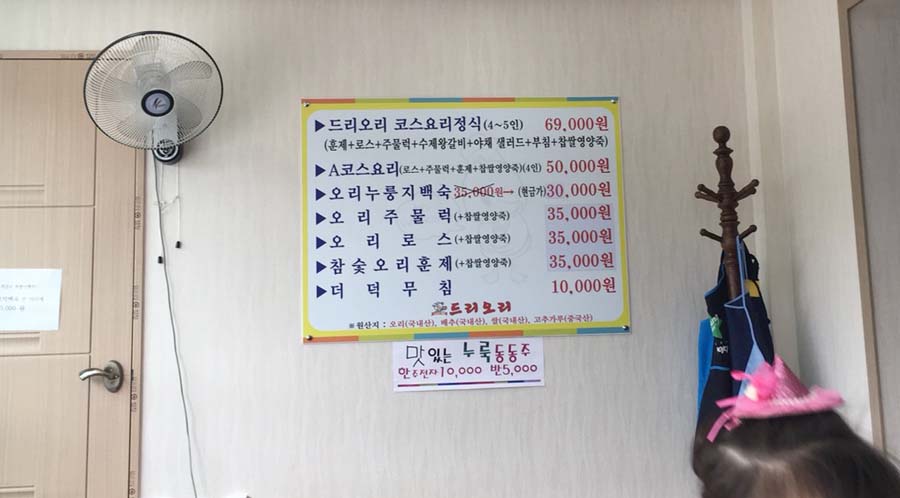 ▶드리오리 코스요리정식(4~5인) 69,000원
(훈제+로스+주물럭+수제왕갈비+야채 샐러드+부침+찹쌀영양죽)
▶A코스요리(로스+주물럭+훈제+찹쌀영양죽)(4인) 50,000원
▶오리누룽지백숙 35,000원→ (현금가)30,000원
▶오리주물럭(+찹쌀영양죽) 35,000원
▶오리로스(+찹쌀영양죽) 35,000원
▶참숯오리훈제(+찹쌀영양죽) 35,000원
▶더덕무침 10,000원
드리오리
※원산지 : 오리(국내산), 배추(국내산), 쌀(국내산), 고추가루(중국산)
맛있는 누룩동동주
한주전자10,000 반5,000